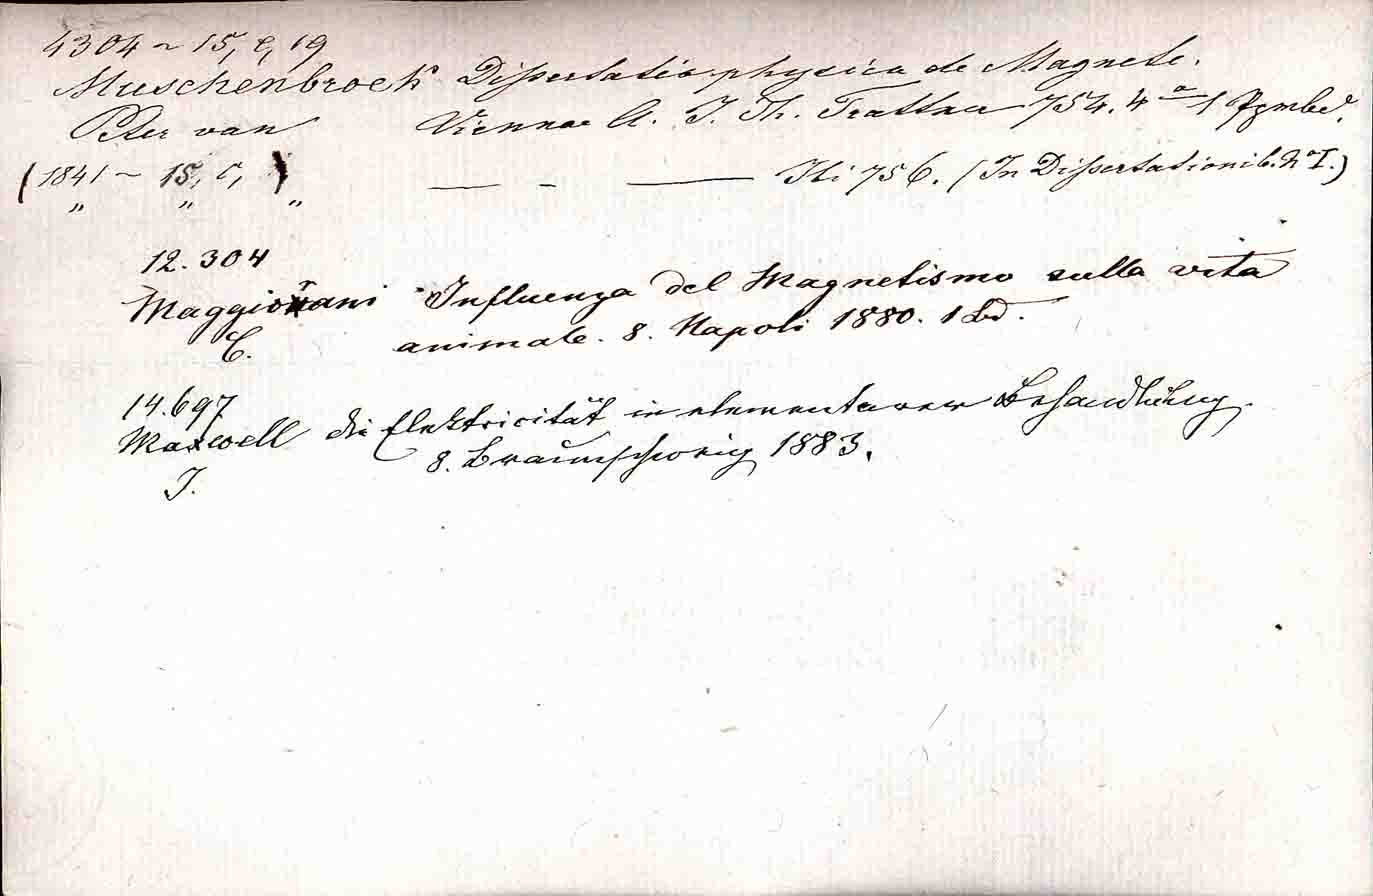 4304 ~ 15, c, 19
Muschenbroek Dissertatio physica de Magnete.
Peter van Viennae A. J. Th. Trattner 754. 4° 1 Pgmbd.
(1841 ~ 15, c, ) — - — Iti 756. (In Dissertationib. No I.)
„ „ „
12.304
Maggiorani Influenza del Magnetismo sulla vita
C. animale. 8. Napoli 1880. 1 Bd.
14.697
Maxwell die Elektricität in elementarer Behandlung
J. 8. Braunschweig 1883.